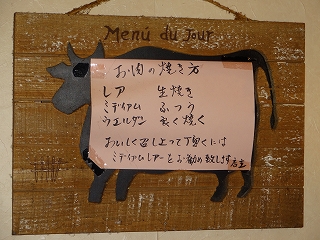 Menú du Jour
お肉の焼き方
レア 生焼き
ミディアム ふつう
ウエルダン 良く焼く
おいしく召し上って頂くには
ミディアムレアーをお勧め致します 店主